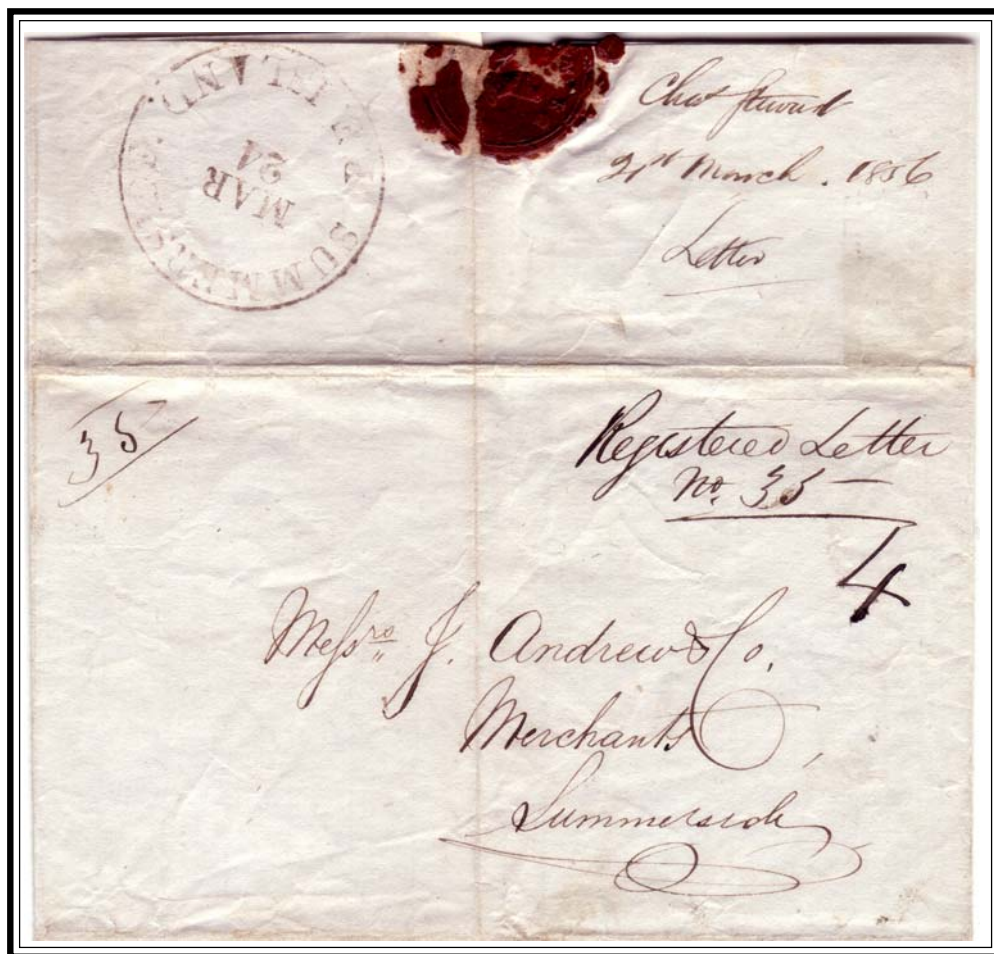 SUMMERSIDE P.E. ISLAND.
MAR
24
Chas Steward
21st March. 1856
Letter
35
Registered Letter
No. 35 —
4
Messrs J. Andrew & Co.
Merchants,
Summerside